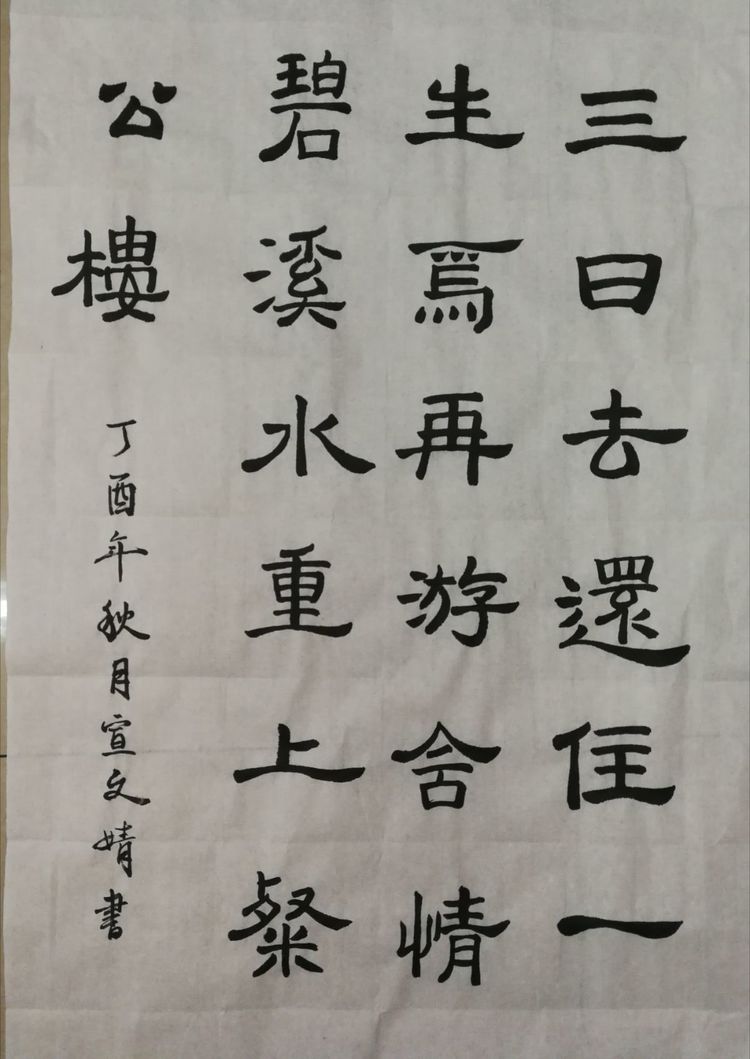 三日去還住一
生焉再游舍情
碧溪水重上粲
公樓
丁酉年秋月宣文婧書